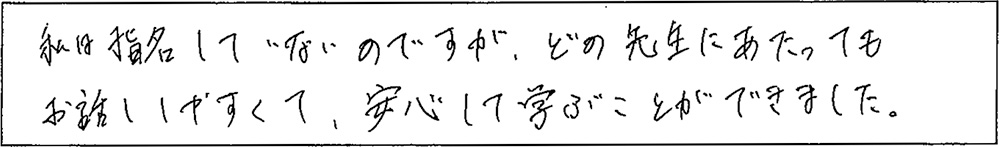 私は指名していないのですが、どの先生にあたっても
お話ししやすくて、安心して学ぶことができました。